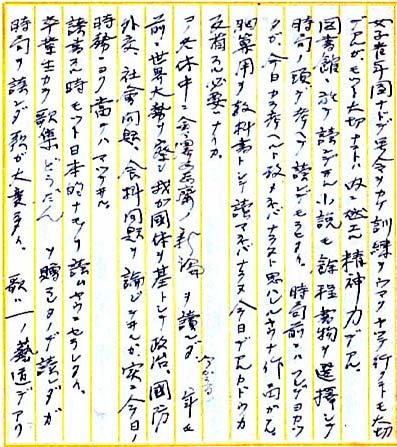 女子青年団ナドデ号令ヲカケ訓練ヲウマクヤツテ行クノモ大切
デアルガモツト大切ナコトハ内ニ燃エル精神力デアル。
図書館ニ於テ読マレル小説モ余程書物ヲ選択シテ
時局ノ頭デ考ヘテ読ンデモラヒタイ。時局前ニハコレデヨカツ
タガ、今日カラ考ヘレバ改メネバナラヌト思ハレルヤウナ作品ガ
胸算用ヲ教科書トシテ読マネバナラヌ今日デアルカドウカ
反省スル必要ハナイカ。
コノ大休中ニ会澤正志斎ノ新論ヲ読ンダ。
前ニ世界大勢ヲ察シ我ガ国体ヲ基トシテ政治、国防
外交、社会問題、食料問題ヲ論ジテヰルガ、実ニ今日ノ
時務ニヨク当テハマツテヰル。
読書スル時モツト日本的ナモノヲ読ムヤウニセラレタイ。
卒業生カラ歌集どうだんヲ贈ラレタノデ読ンダガ
時局ヲ読ンダ歌ガ大変多イ。歌ハ一ノ藝道デアリ